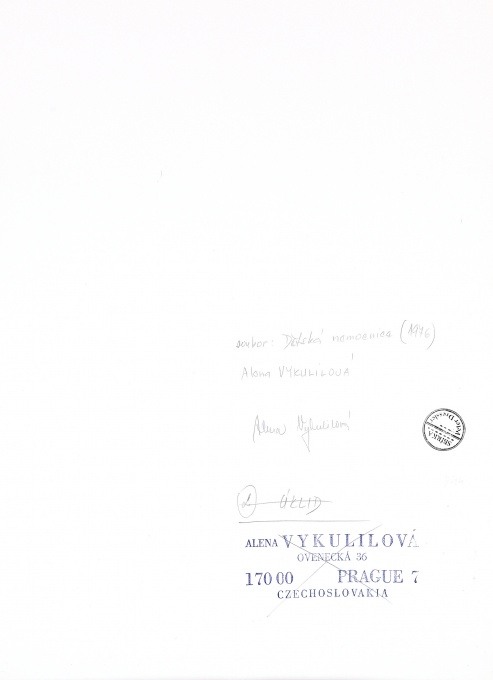 soubor: Dětská nemocnice (1976)
Alena VYKULILOVÁ
Alena Vykulilová
ÚKLID
ALENA VYKULILOVÁ
OVENECKÁ 36
170 00 PRAGUE 7
CZECHOSLOVAKIA
SBÍRKA